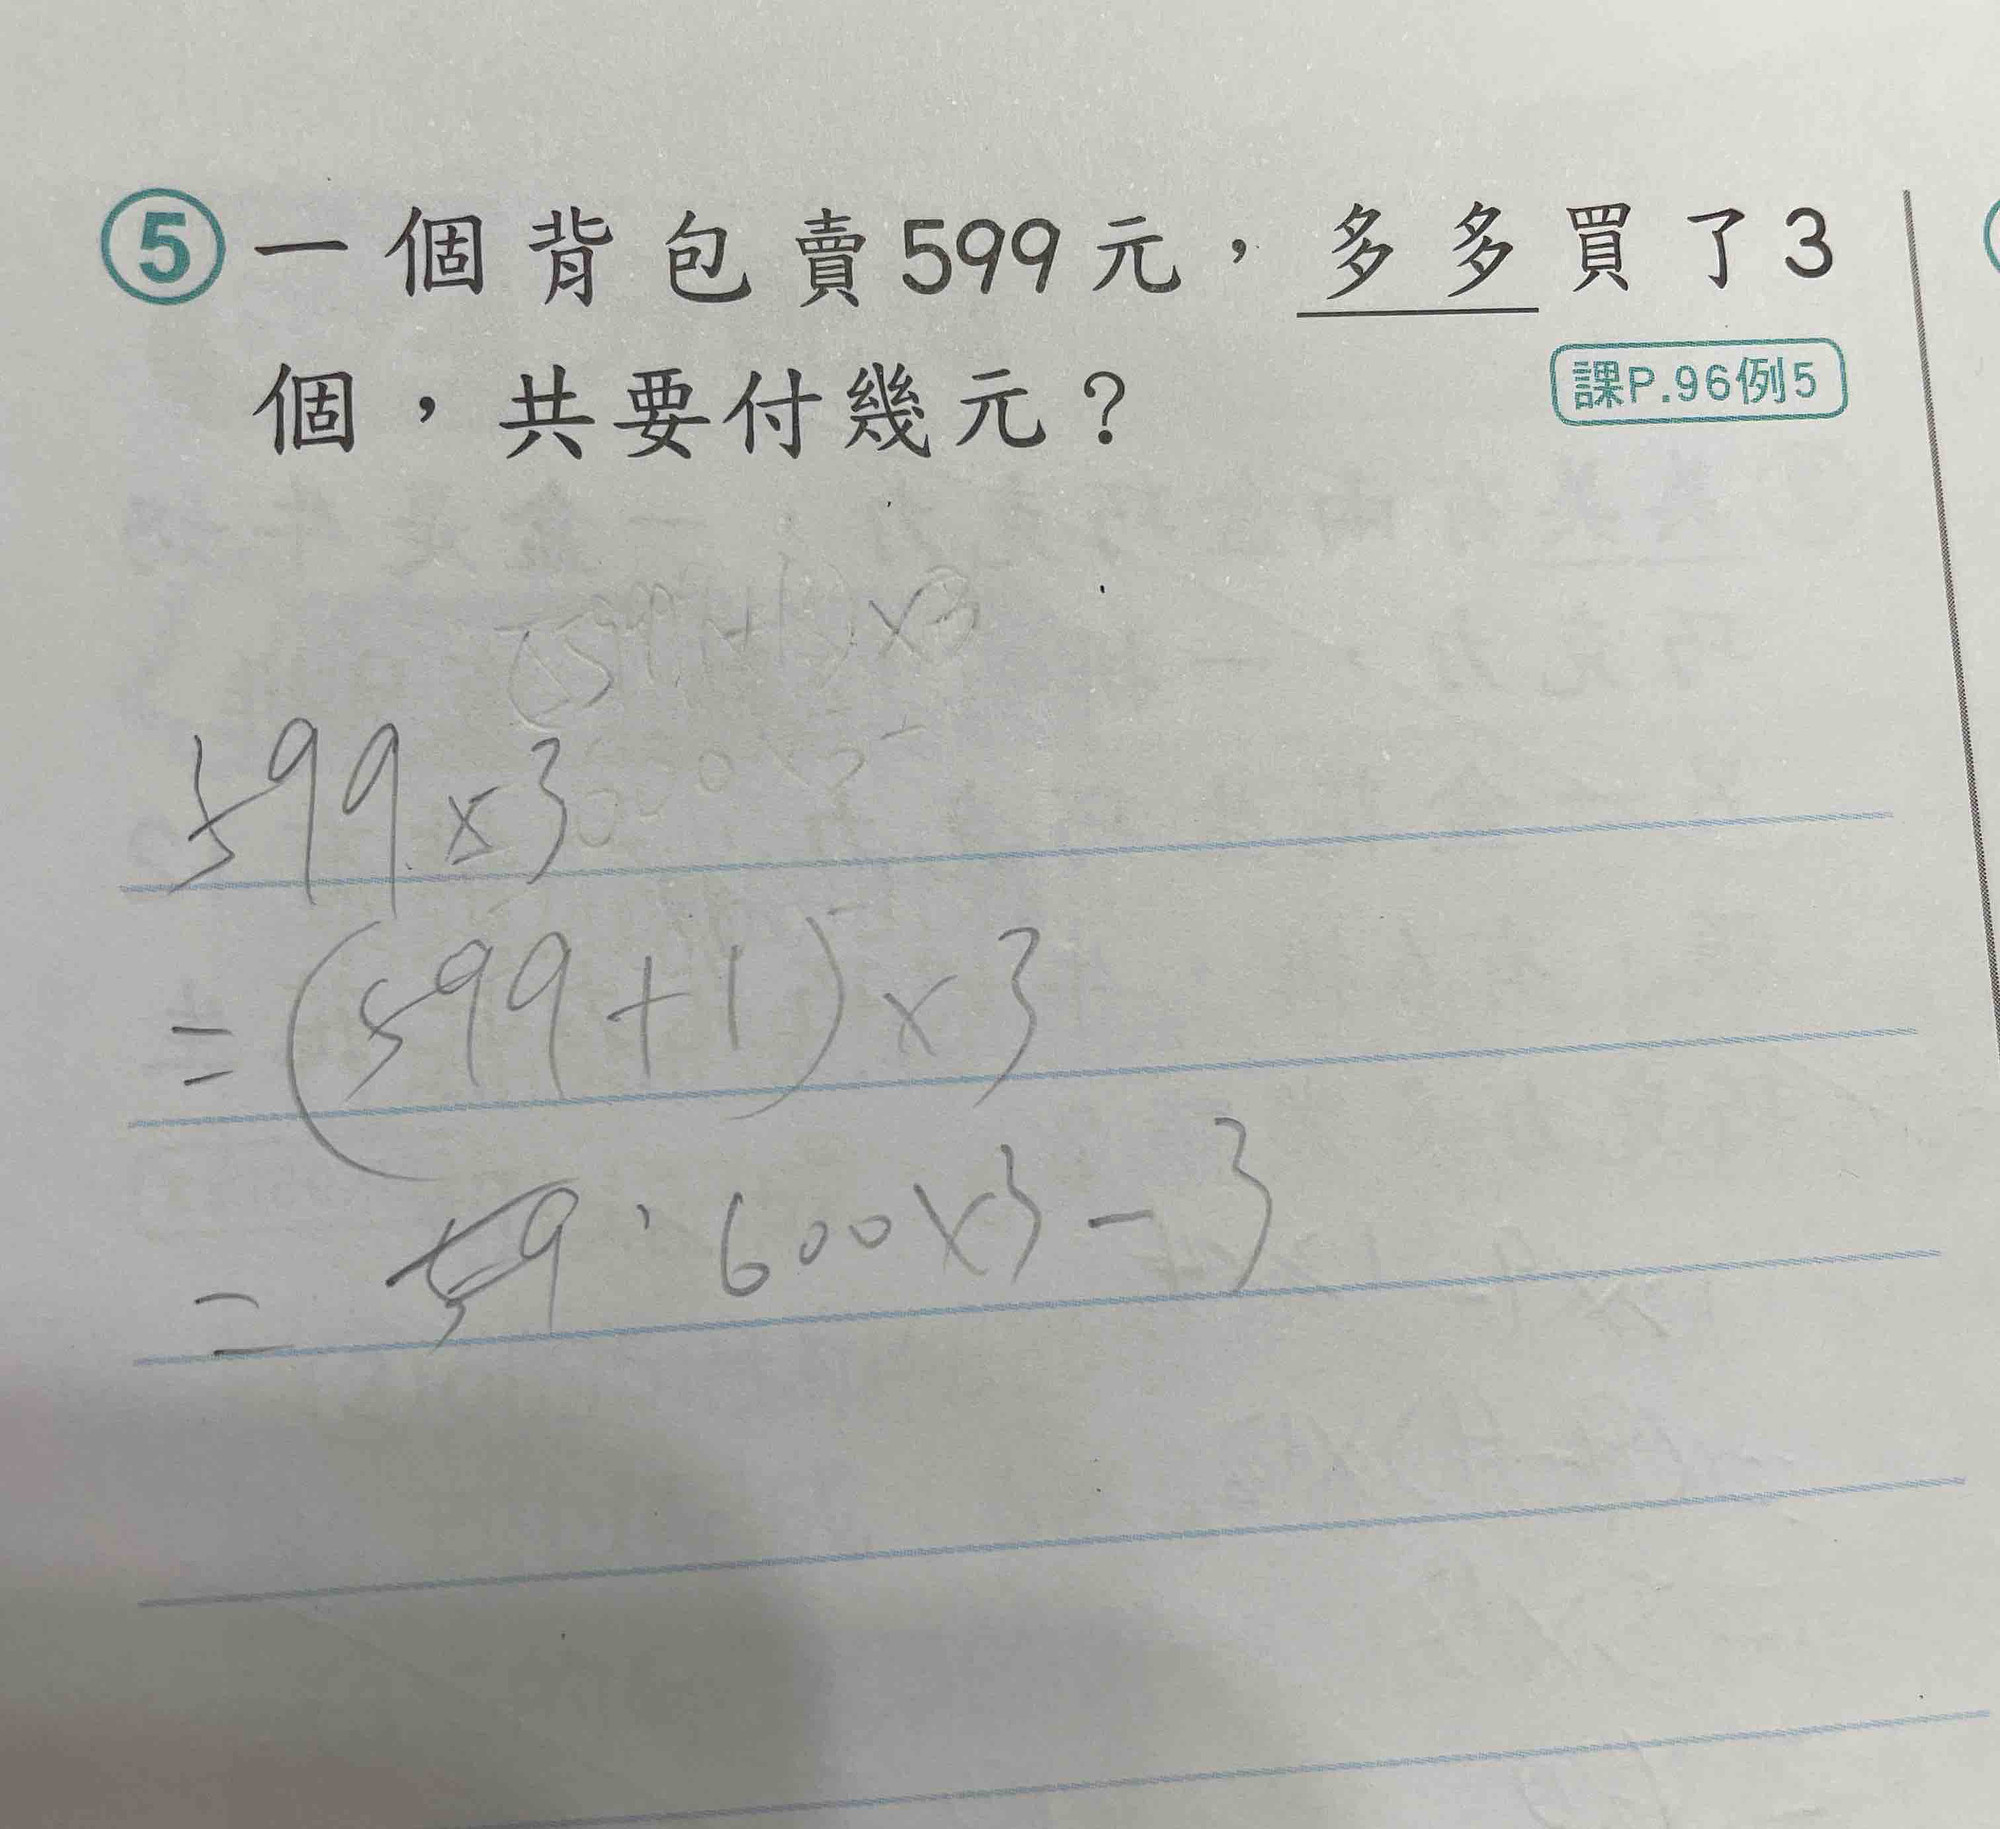 ⑤一個背包賣599元，多多買了3
個，共要付幾元？
課P.96例5
599×3
=(599+1)×3
= 600×3-3